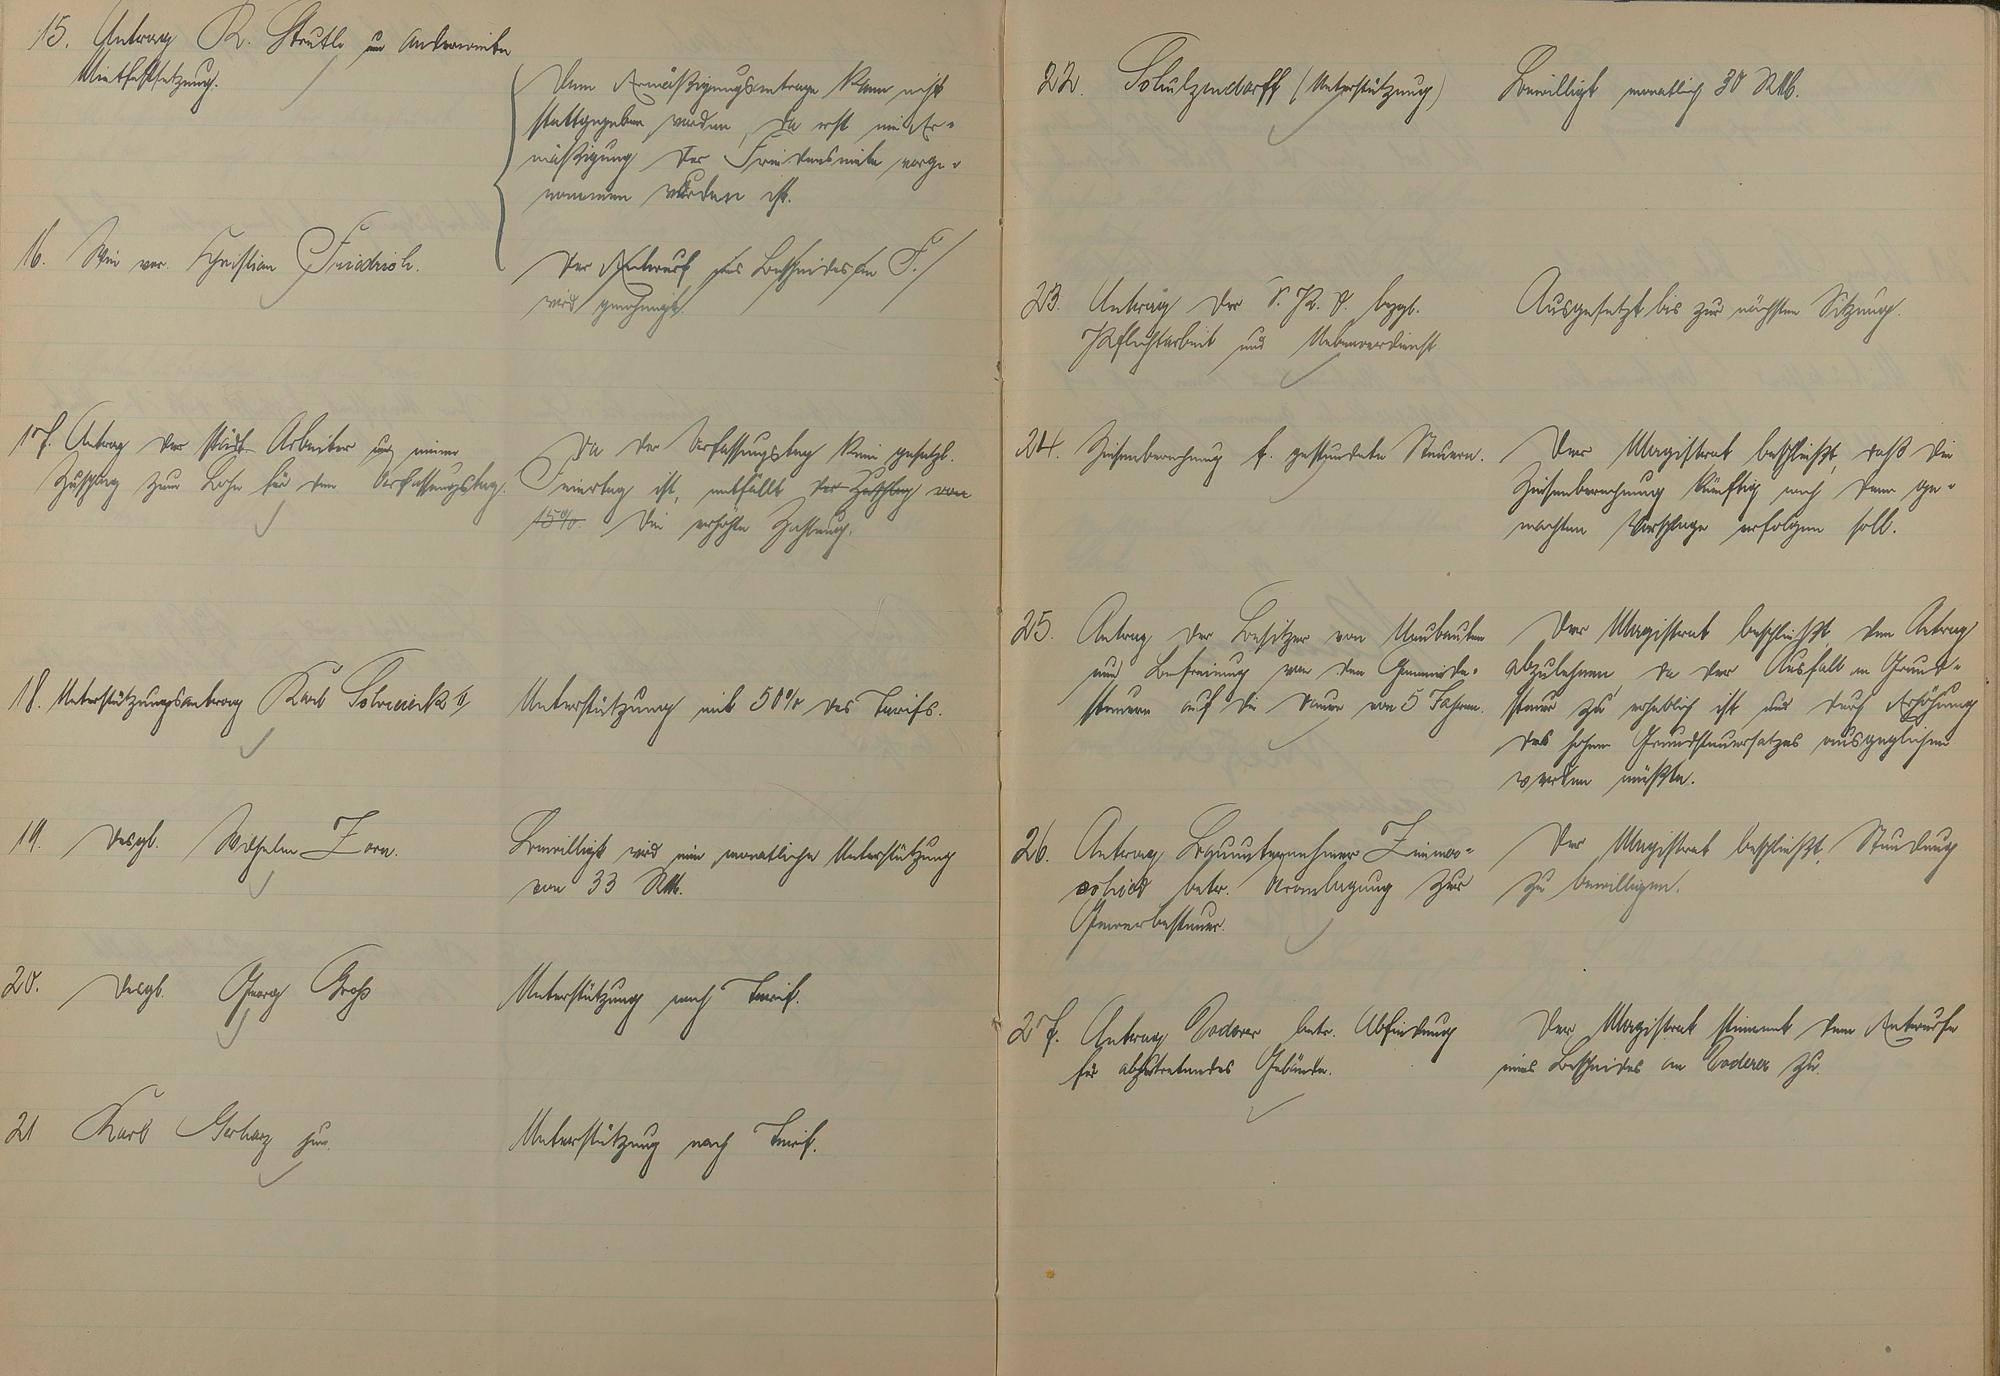 15. Antrag R. Strutt um anderweite
Mietfestsetzung.
Dem Ermäßigungsantrage kann nicht
stattgegeben werden, da erst eine Er-
mäßigung der Friedensmiete vorge-
nommen worden ist.
16. Wie vor. Christian Friedrich.
Der Entwurf des Bescheides an F.
wird genehmigt.
17. Antrag der städt. Arbeiter auf einen
Zuschlag zum Lohn für den Verfassungstag.
Da der Verfassungstag kein gesetzl.
Feiertag ist, entfällt der Zuschlag von
15% die erhöhte Zahlung.
18. Unterstützungsantrag Karl II
Unterstützung mit 50% des Tarifs.
19. Desgl. Wilhelm Zorn.
Bewilligt wird eine monatliche Unterstützung
von 33 RM.
20. Desgl. Georg Groß
Unterstützung nach Tarif.
21 Karl Gerharz jun.
Unterstützung nach Tarif.
22. Schulzendorff (Unterstützung)
Bewilligt monatlich 30 RM.
23. Antrag der S.P.D. bezgl.
Pflichtarbeit und Nebenverdienst
Ausgesetzt bis zur nächsten Sitzung.
24. Zinsenberechnung f. gestundete Steuern.
Der Magistrat beschließt, daß die
Zinsenberechnung künftig nach dem ge-
machten Vorschlage erfolgen soll.
25. Antrag der Besitzer von Neubauten
um Befreiung von den Gemeinde-
steuern auf die Dauer von 5 Jahren.
Der Magistrat beschließt den Antrag
abzulehnen da der Ausfall an Grund-
steuer zu erheblich ist und durch Erhöhung
des hohen Grundsteuersatzes ausgeglichen
werden müßte.
26. Antrag Bauunternehmer Zimmer-
schied betr. Veranlagung zur
Gewerbesteuer.
Der Magistrat beschließt, Stundung
zu bewilligen.
27. Antrag Doderer betr. Abfindung
für abzutretendes Gebäude.
Der Magistrat stimmt dem Entwurfe
eines Bescheides an Doderer zu.